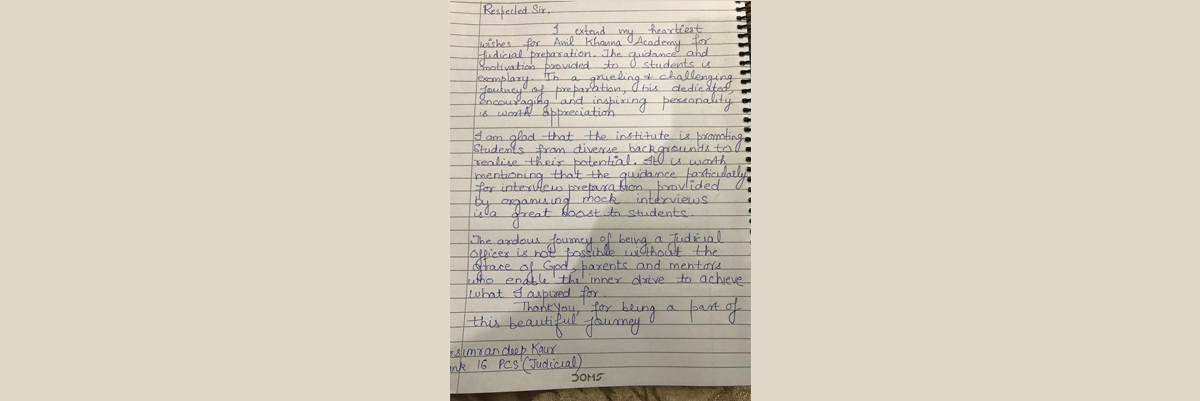 Respected Sir,
I extend my heartiest
wishes for Anil Khanna Academy for
Judicial preparation. The guidance and
motivation provided to students is
exemplary. In a grueling & challenging
journey of preparation, his dedicated,
encouraging and inspiring personality
is worth appreciation
I am glad that the institute is promoting
students from diverse backgrounds to
realise their potential. It is worth
mentioning that the guidance particularly
for interview preparation provided
by organising mock interviews
is a great boost to students.
The ardous journey of being a Judicial
officer is not possible without the
grace of God, parents and mentors
who enable the inner drive to achieve
what I aspired for.
Thankyou, for being a part of
this beautiful journey
simrandeep Kaur
nk 16 PCS (Judicial)